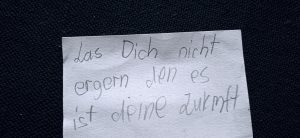 las Dich nicht
ergern den es
ist deine zukunft